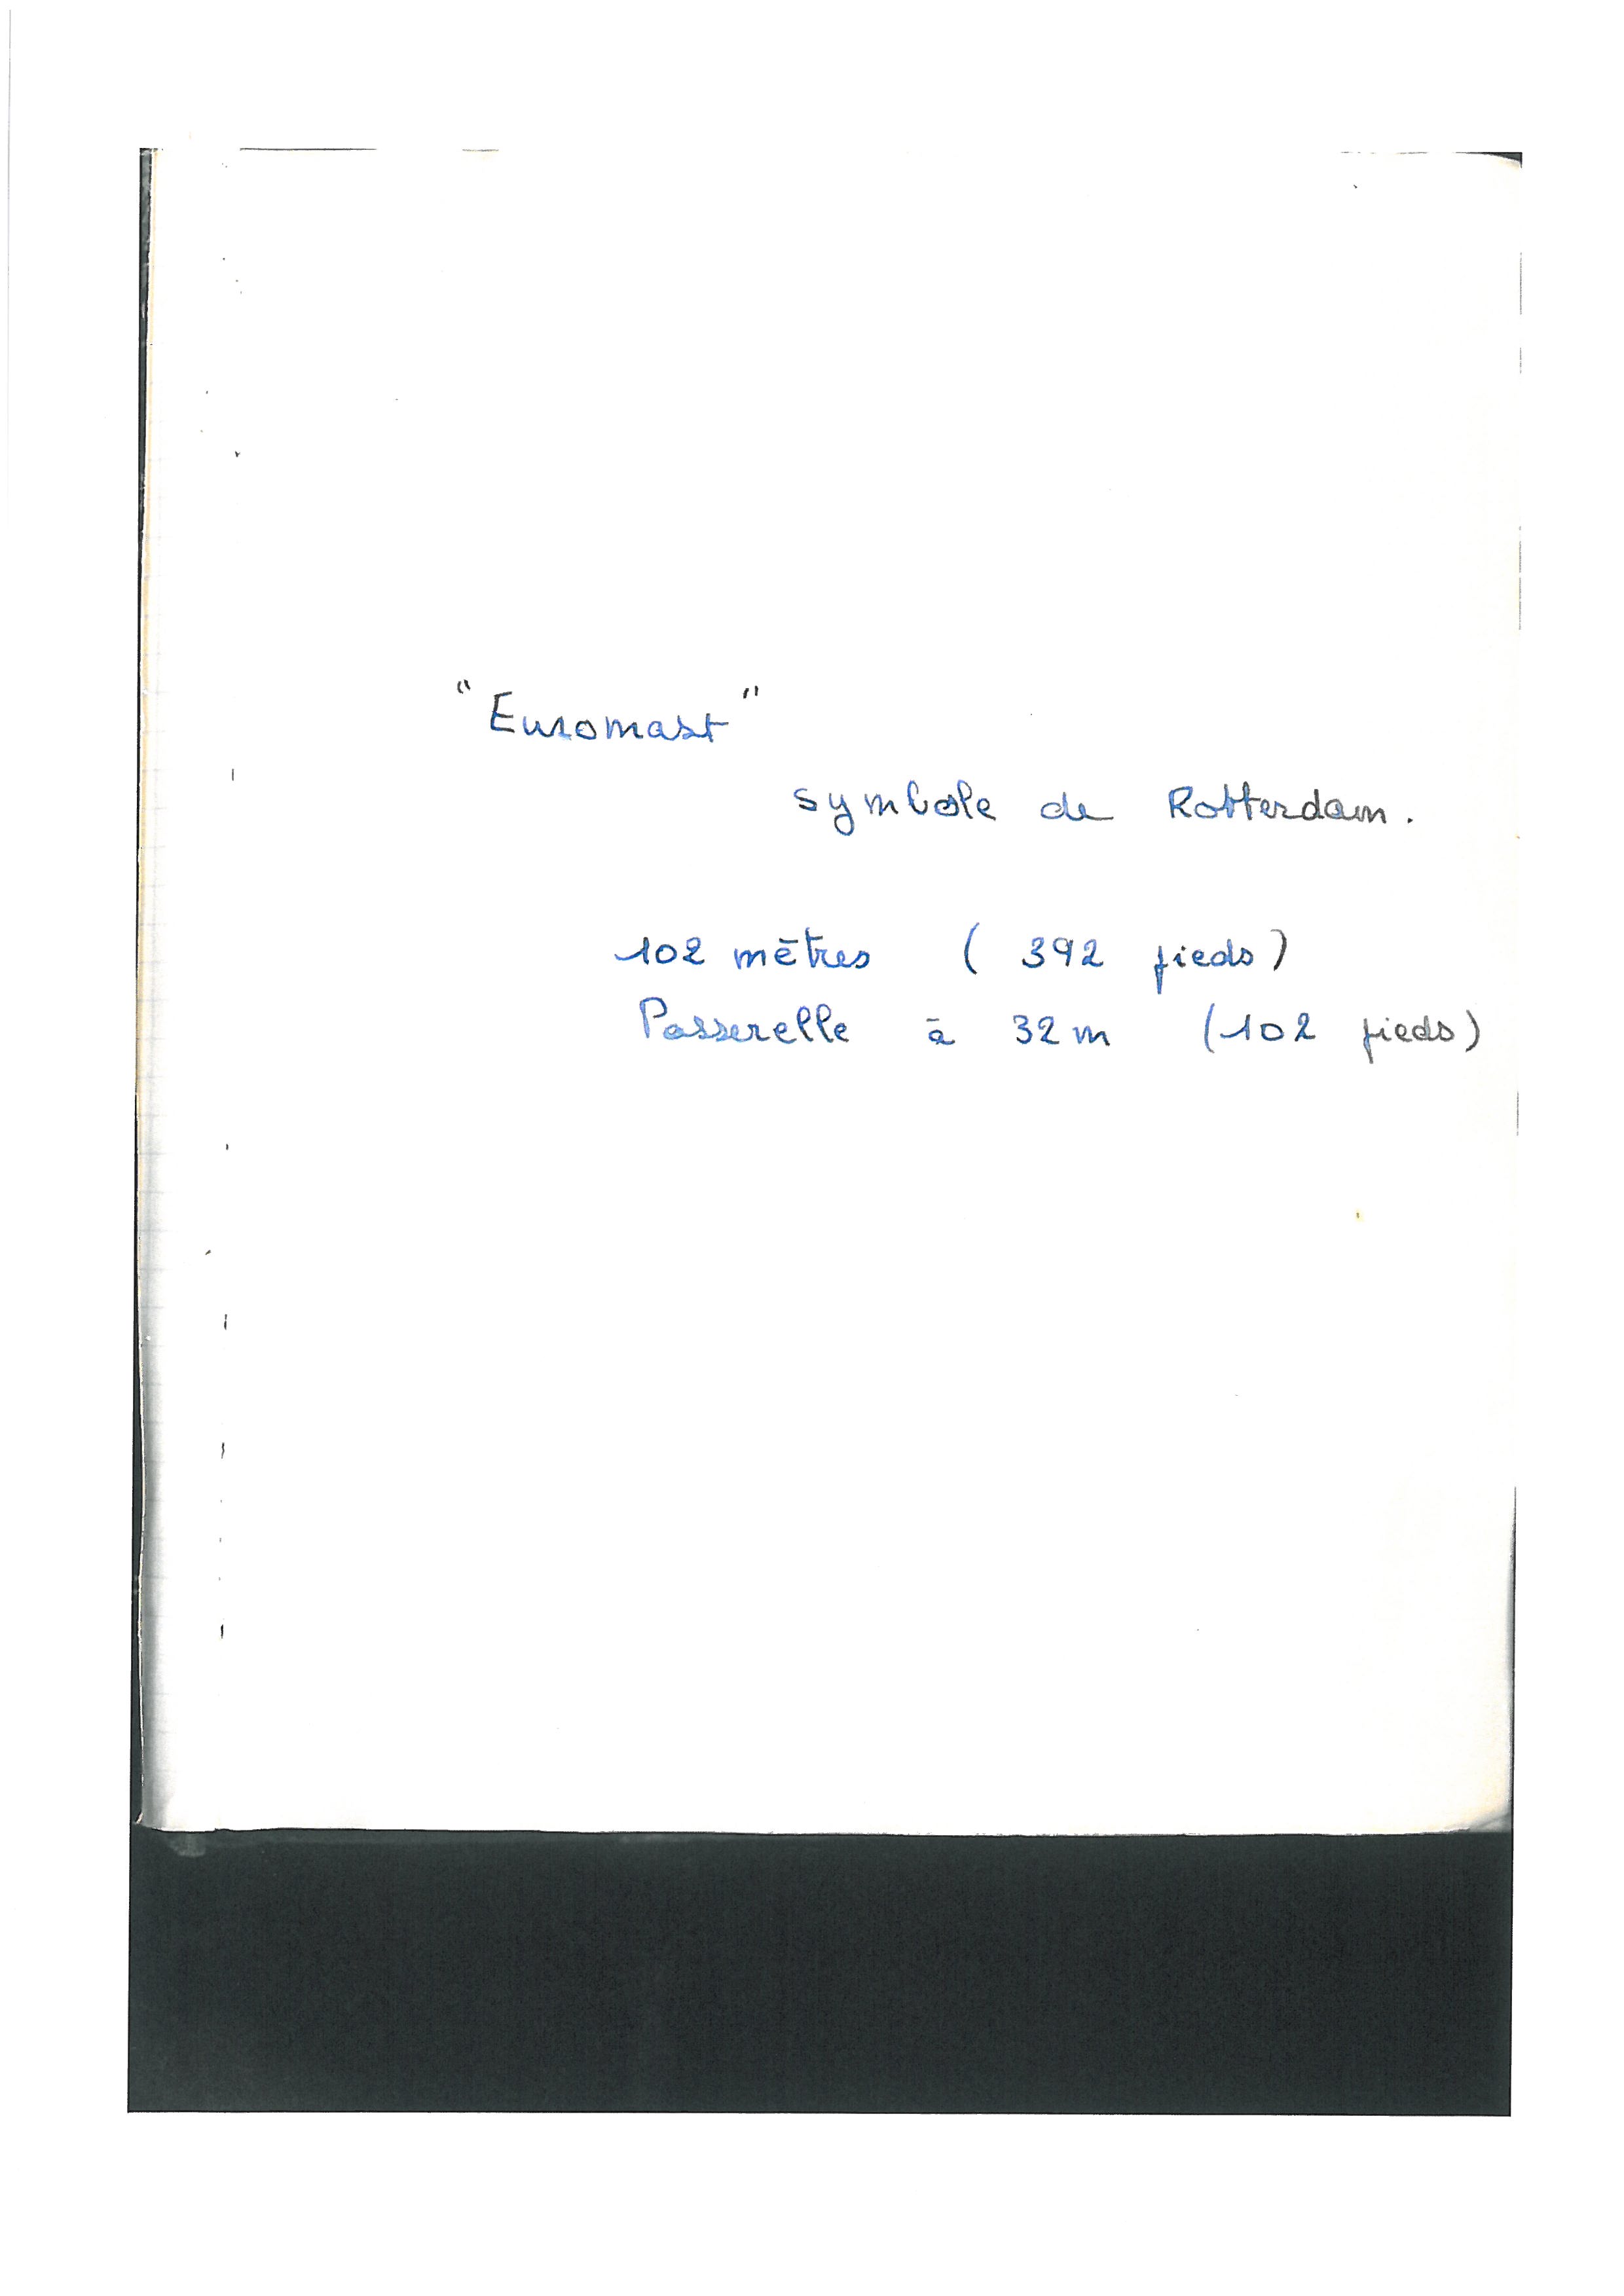 "Euromast"
symbole de Rotterdam.
102 mètres ( 392 pieds)
Passerelle à 32 m (102 pieds)